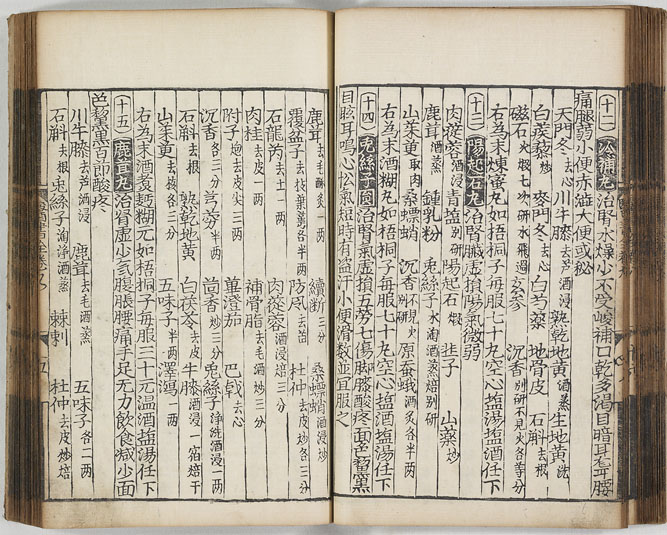 (十一) 冷補丸治腎水燥少不受峻補口乾多渴目暗耳聾腰
痛腿弱小便赤澁大便或秘
天門冬去心 川牛膝去芦酒浸 熟乾地黄酒蒸 生地黄洗
白蒺藜炒 麥門冬去心 白芍藥 地骨皮 石斛去根
磁石火煅七次研水飛過 玄參 沉香別研不見火各等分
右為末煉蜜丸如梧桐子每服七十丸空心塩湯塩酒任下
(十二) 陽起石丸治腎臓虛損陽氣微弱
肉蓯蓉酒浸 青塩別研 陽起石煅 韭子 山藥炒
鹿茸酒蒸 鍾乳粉 兎絲子水淘酒蒸焙別研
山茱萸取肉 桑螵蛸 沉香別研不見火 原蚕蛾酒炙各半两
右為末酒糊丸如梧桐子每服七十丸空心塩湯下
(十四) 兎絲子圓治腎氣虛損五劳七傷脚膝酸疼面色黧黑
目眩耳鳴心忪氣短時有盗汗小便滑数並宜服之
鹿茸去毛酥炙一两 續断三分 桑螵蛸酒浸炒
覆盆子去枝葉萼各半两 防風去芦 杜仲去皮炒各三分
石龍芮去土一两 肉蓯蓉酒浸焙三分
肉桂去皮一两 補骨脂去毛酒炒三分
附子炮去皮尖三两 蓽澄茄 巴戟去心
沉香各三分 芎藭半两 茴香炒三分 兎絲子净洗酒浸一两
石斛去根 熟乾地黄 白茯苓去皮 牛膝酒浸一宿焙干
山茱萸去核各三分 五味子半两 澤瀉一两
右為末酒煮麪糊元如梧桐子每服三十元温酒塩湯任下
(十五) 鹿茸丸治腎虛少氣腹脹腰痛手足无力飲食减少面
色黧黑百節酸疼
川牛膝去芦酒浸 鹿茸去毛酒蒸 五味子各二两
石斛去根 兎絲子淘浄酒蒸 棘刺 杜仲去皮炒焙